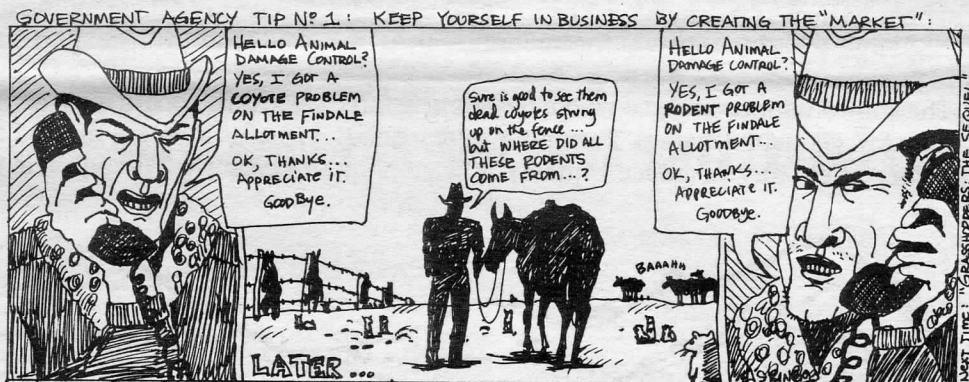 GOVERNMENT AGENCY TIP Nº 1: KEEP YOURSELF IN BUSINESS BY CREATING THE "MARKET":
HELLO ANIMAL
DAMAGE CONTROL?
YES, I GOT A
COYOTE PROBLEM
ON THE FINDALE
ALLOTMENT...
OK, THANKS...
APPRECIATE IT.
GOODBYE.
Sure is good to see them
dead coyotes strung
up on the fence...
but WHERE DID ALL
THESE RODENTS
COME FROM...?
BAAAHH
LATER...
HELLO ANIMAL
DAMAGE CONTROL?
YES, I GOT A
RODENT PROBLEM
ON THE FINDALE
ALLOTMENT...
OK, THANKS...
APPRECIATE IT.
GOODBYE.
NEXT TIME: "GRASSHOPPERS, THE SEQUEL"